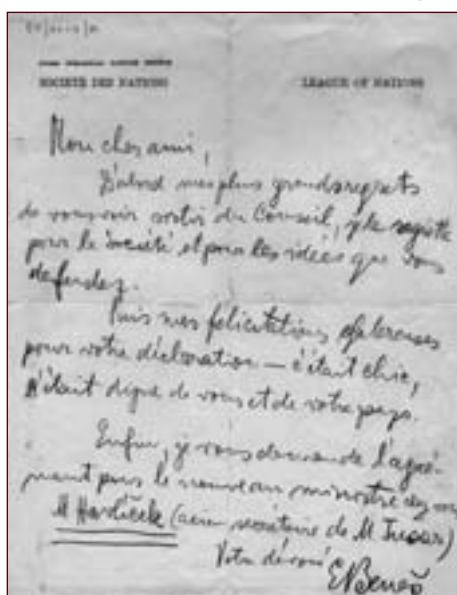 SOCIÉTÉ DES NATIONS LEAGUE OF NATIONS
Mon cher ami,
D'abord mes plus grands regrets
de vous voir sortir du Conseil, je le regrette
pour la Société et pour les idées que vous
defendez.
Puis mes félicitations chaleureuses
pour votre déclaration — c'était chic,
c'était digne de vous et de votre pays.
Enfin, je vous demande l'agré-
ment pour le nouveau ministre chez vous
M Havlíček (secrétaire de M Tusar)
Votre dévoué
EBeneš